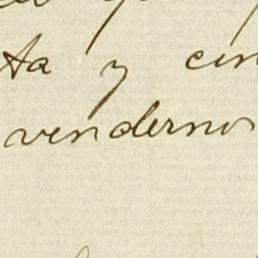 ta y cin
vendernos